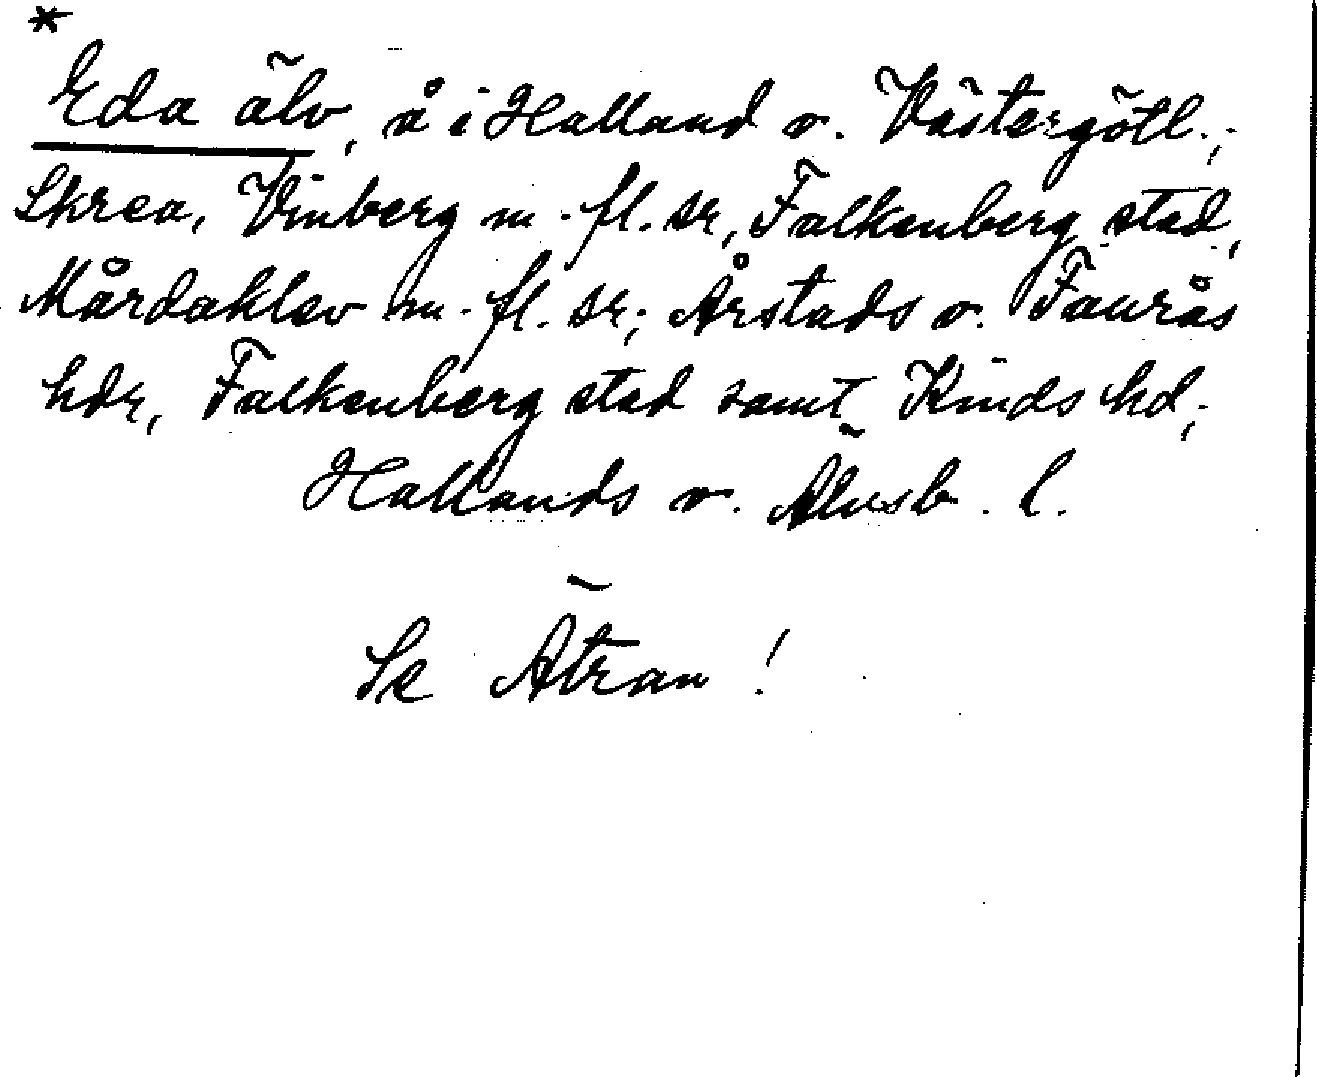 *
Eda älv, å i Halland o. Västergötl.;
Skrea, Vinberg m. fl. sr, Falkenberg stad,
Mårdaklev m. fl. sr; Årstads o. Faurås
hdr, Falkenberg stad samt Kinds hd;
Hallands o. Älvsb. l.
Se Ätran!